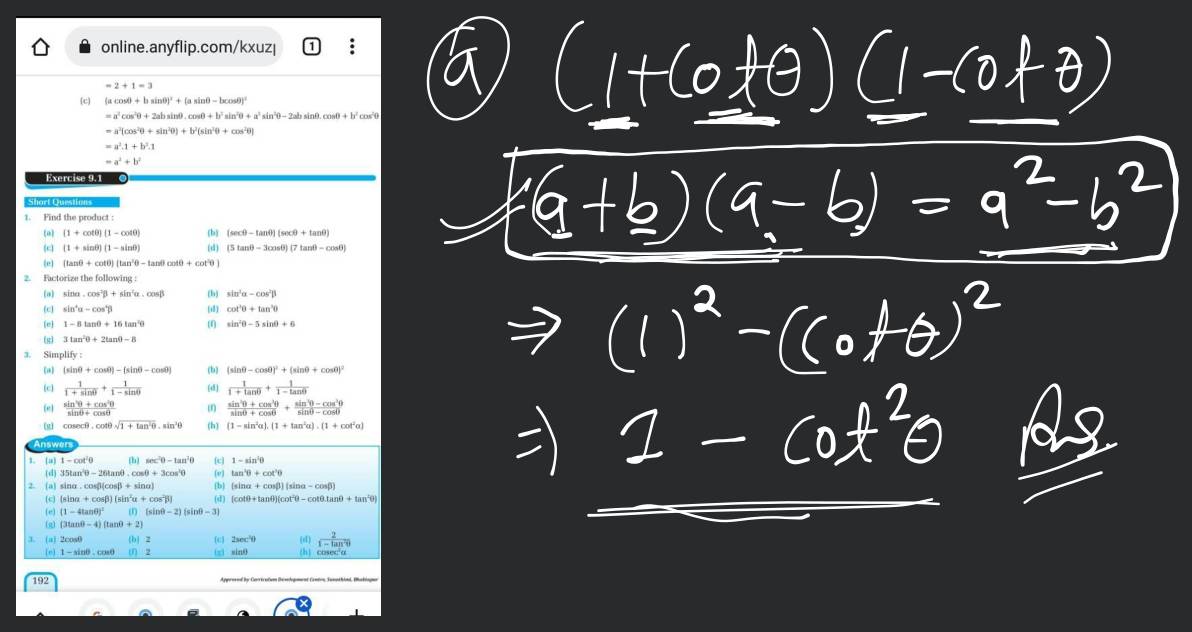 online.anyflip.com/kxuzp
1
= 2 + 1 = 3
(c) (a cosθ + b sinθ)² + (a sinθ – bcosθ)²
= a² cos²θ + 2ab sinθ . cosθ + b² sin²θ + a² sin²θ – 2ab sinθ. cosθ + b² cos²θ
= a²(cos²θ + sin²θ) + b²(sin²θ + cos²θ)
= a².1 + b².1
= a² + b²
Exercise 9.1
Short Questions
1. Find the product :
(a) (1 + cotθ) (1 – cotθ) (b) (secθ – tanθ) (secθ + tanθ)
(c) (1 + sinθ) (1 – sinθ) (d) (5 tanθ – 3cosθ) (7 tanθ – cosθ)
(e) (tanθ + cotθ) (tan²θ – tanθ cotθ + cot²θ )
2. Factorize the following :
(a) sinα . cos²β + sin²α . cosβ (b) sin²α – cos²β
(c) sin⁴α – cos⁴β (d) cot³θ + tan³θ
(e) 1 – 8 tanθ + 16 tan²θ (f) sin²θ – 5 sinθ + 6
(g) 3 tan²θ + 2tanθ – 8
3. Simplify :
(a) (sinθ + cosθ) – (sinθ – cosθ) (b) (sinθ – cosθ)² + (sinθ + cosθ)²
(c) 1/(1 + sinθ) + 1/(1 – sinθ) (d) 1/(1 + tanθ) + 1/(1 – tanθ)
(e) (sin³θ + cos³θ)/(sinθ + cosθ) (f) (sin³θ + cos³θ)/(sinθ + cosθ) + (sin³θ – cos³θ)/(sinθ – cosθ)
(g) cosecθ . cotθ √(1 + tan²θ) . sin³θ (h) (1 – sin²α). (1 + tan²α) . (1 + cot²α)
Answers
1. (a) 1 – cot²θ (b) sec²θ – tan²θ (c) 1 – sin²θ
(d) 35tan²θ – 26tanθ . cosθ + 3cos²θ (e) tan³θ + cot³θ
2. (a) sinα . cosβ(cosβ + sinα) (b) (sinα + cosβ) (sinα – cosβ)
(c) (sinα + cosβ) (sin²α + cos²β) (d) (cotθ+tanθ)(cot²θ – cotθ.tanθ + tan²θ)
(e) (1 – 4tanθ)² (f) (sinθ – 2) (sinθ – 3)
(g) (3tanθ – 4) (tanθ + 2)
3. (a) 2cosθ (b) 2 (c) 2sec²θ (d) 2/(1 – tan²θ)
(e) 1 – sinθ . cosθ (f) 2 (g) sinθ (h) cosec²α
192
Approved by Curriculum Development Centre, Sanothimi, Bhaktapur
(a) (1+Cotθ) (1–Cotθ)
(a+b)(a–b) = a²–b²
⇒ (1)² – (Cotθ)²
⇒ 1 – Cot²θ Ans.